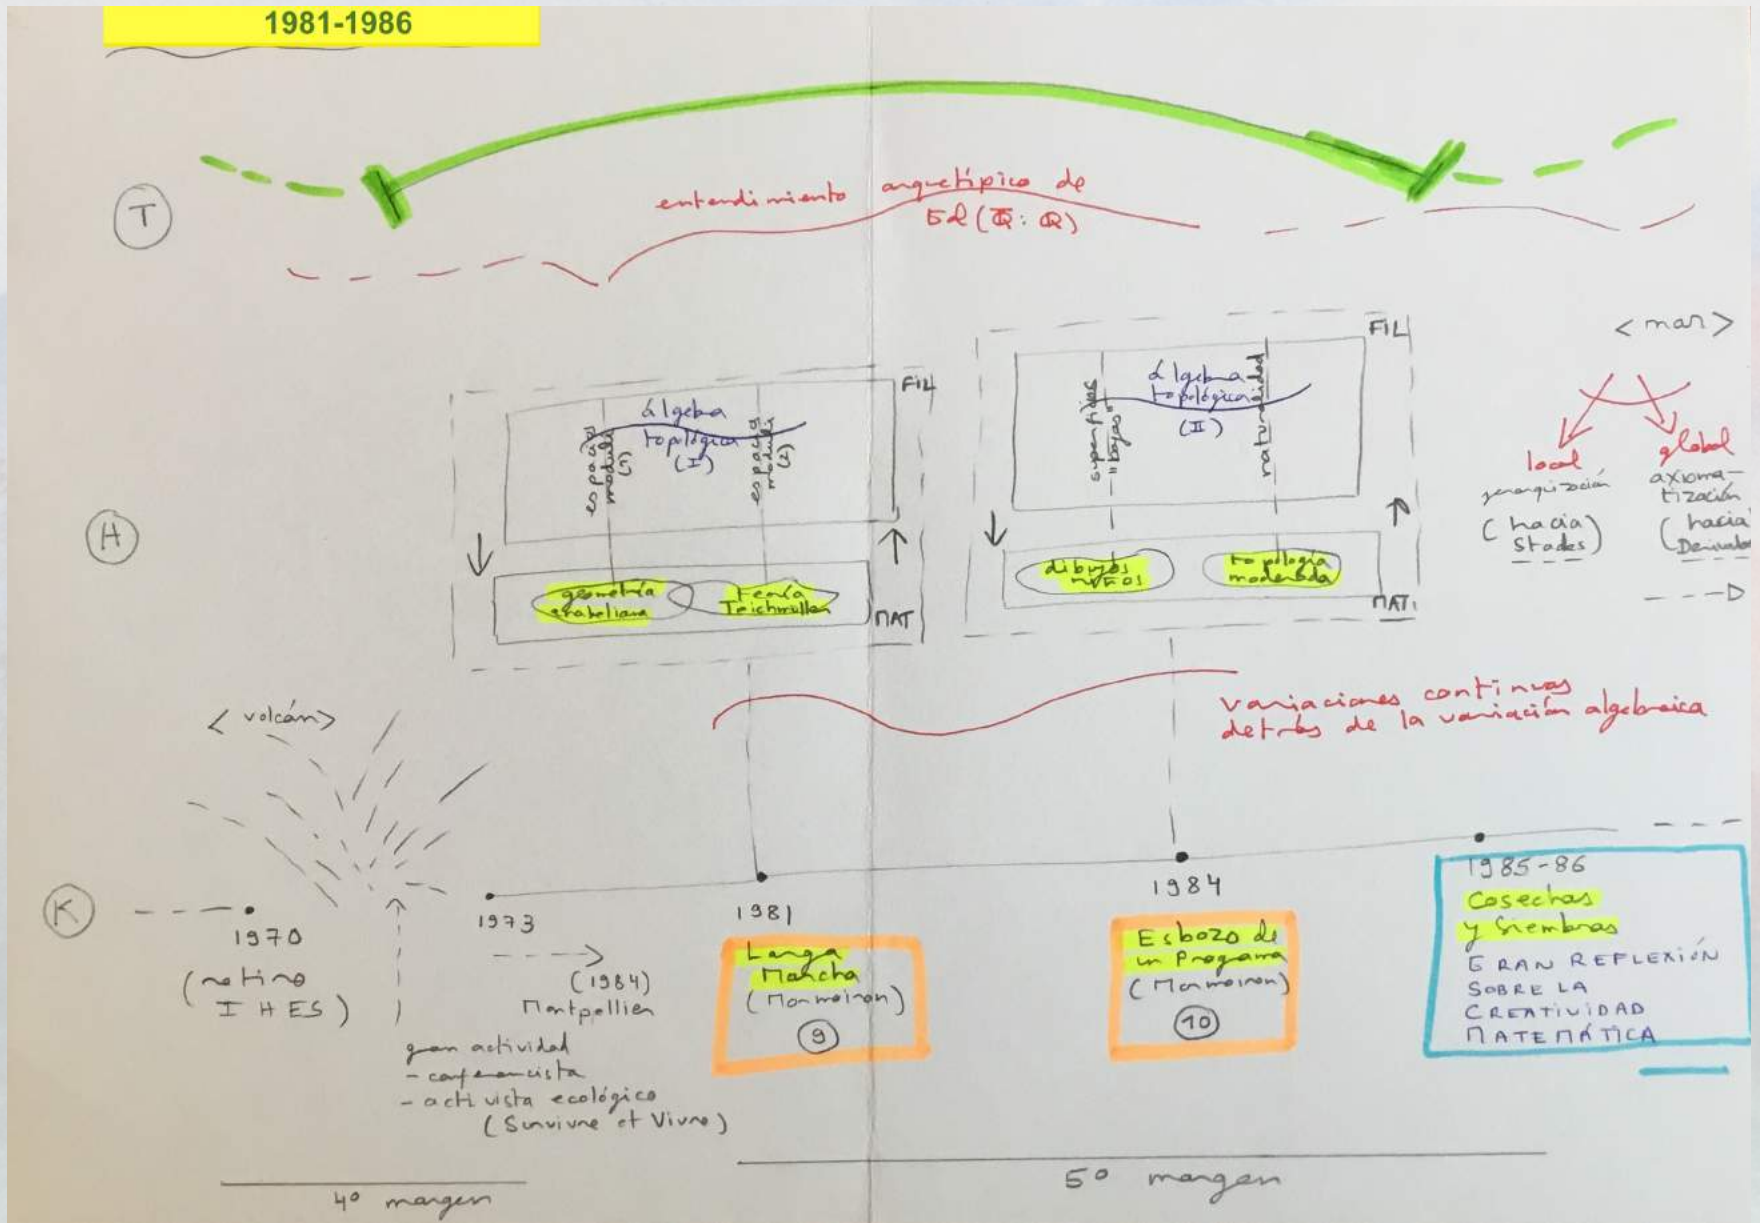 1981-1986
T
entendimiento arquetípico de
Gal (Q̅ : Q)
FIL
álgebra
topológica
(I)
espacios
moduli
(1)
espacios
moduli
(2)
geometría
anabeliana
teoría
Teichmüller
MAT
FIL
álgebra
topológica
(II)
superficies
"bajas"
naturalidad
dibujos
niños
topología
moderada
MAT.
< mar >
local
jerarquización
(hacia
Stades)
global
axioma-
tización
(hacia
H
< volcán >
variaciones continuas
detrás de la variación algebraica
K
1970
(retiro
IHES)
gran actividad
- conferencista
- activista ecológico
(Survivre et Vivre)
1973
(1984)
Montpellier
1981
Larga
Marcha
(Mormoiron)
9
1984
Esbozo de
un Programa
(Mormoiron)
10
1985-86
Cosechas
y Siembras
GRAN REFLEXIÓN
SOBRE LA
CREATIVIDAD
MATEMÁTICA
4º margen
5º margen